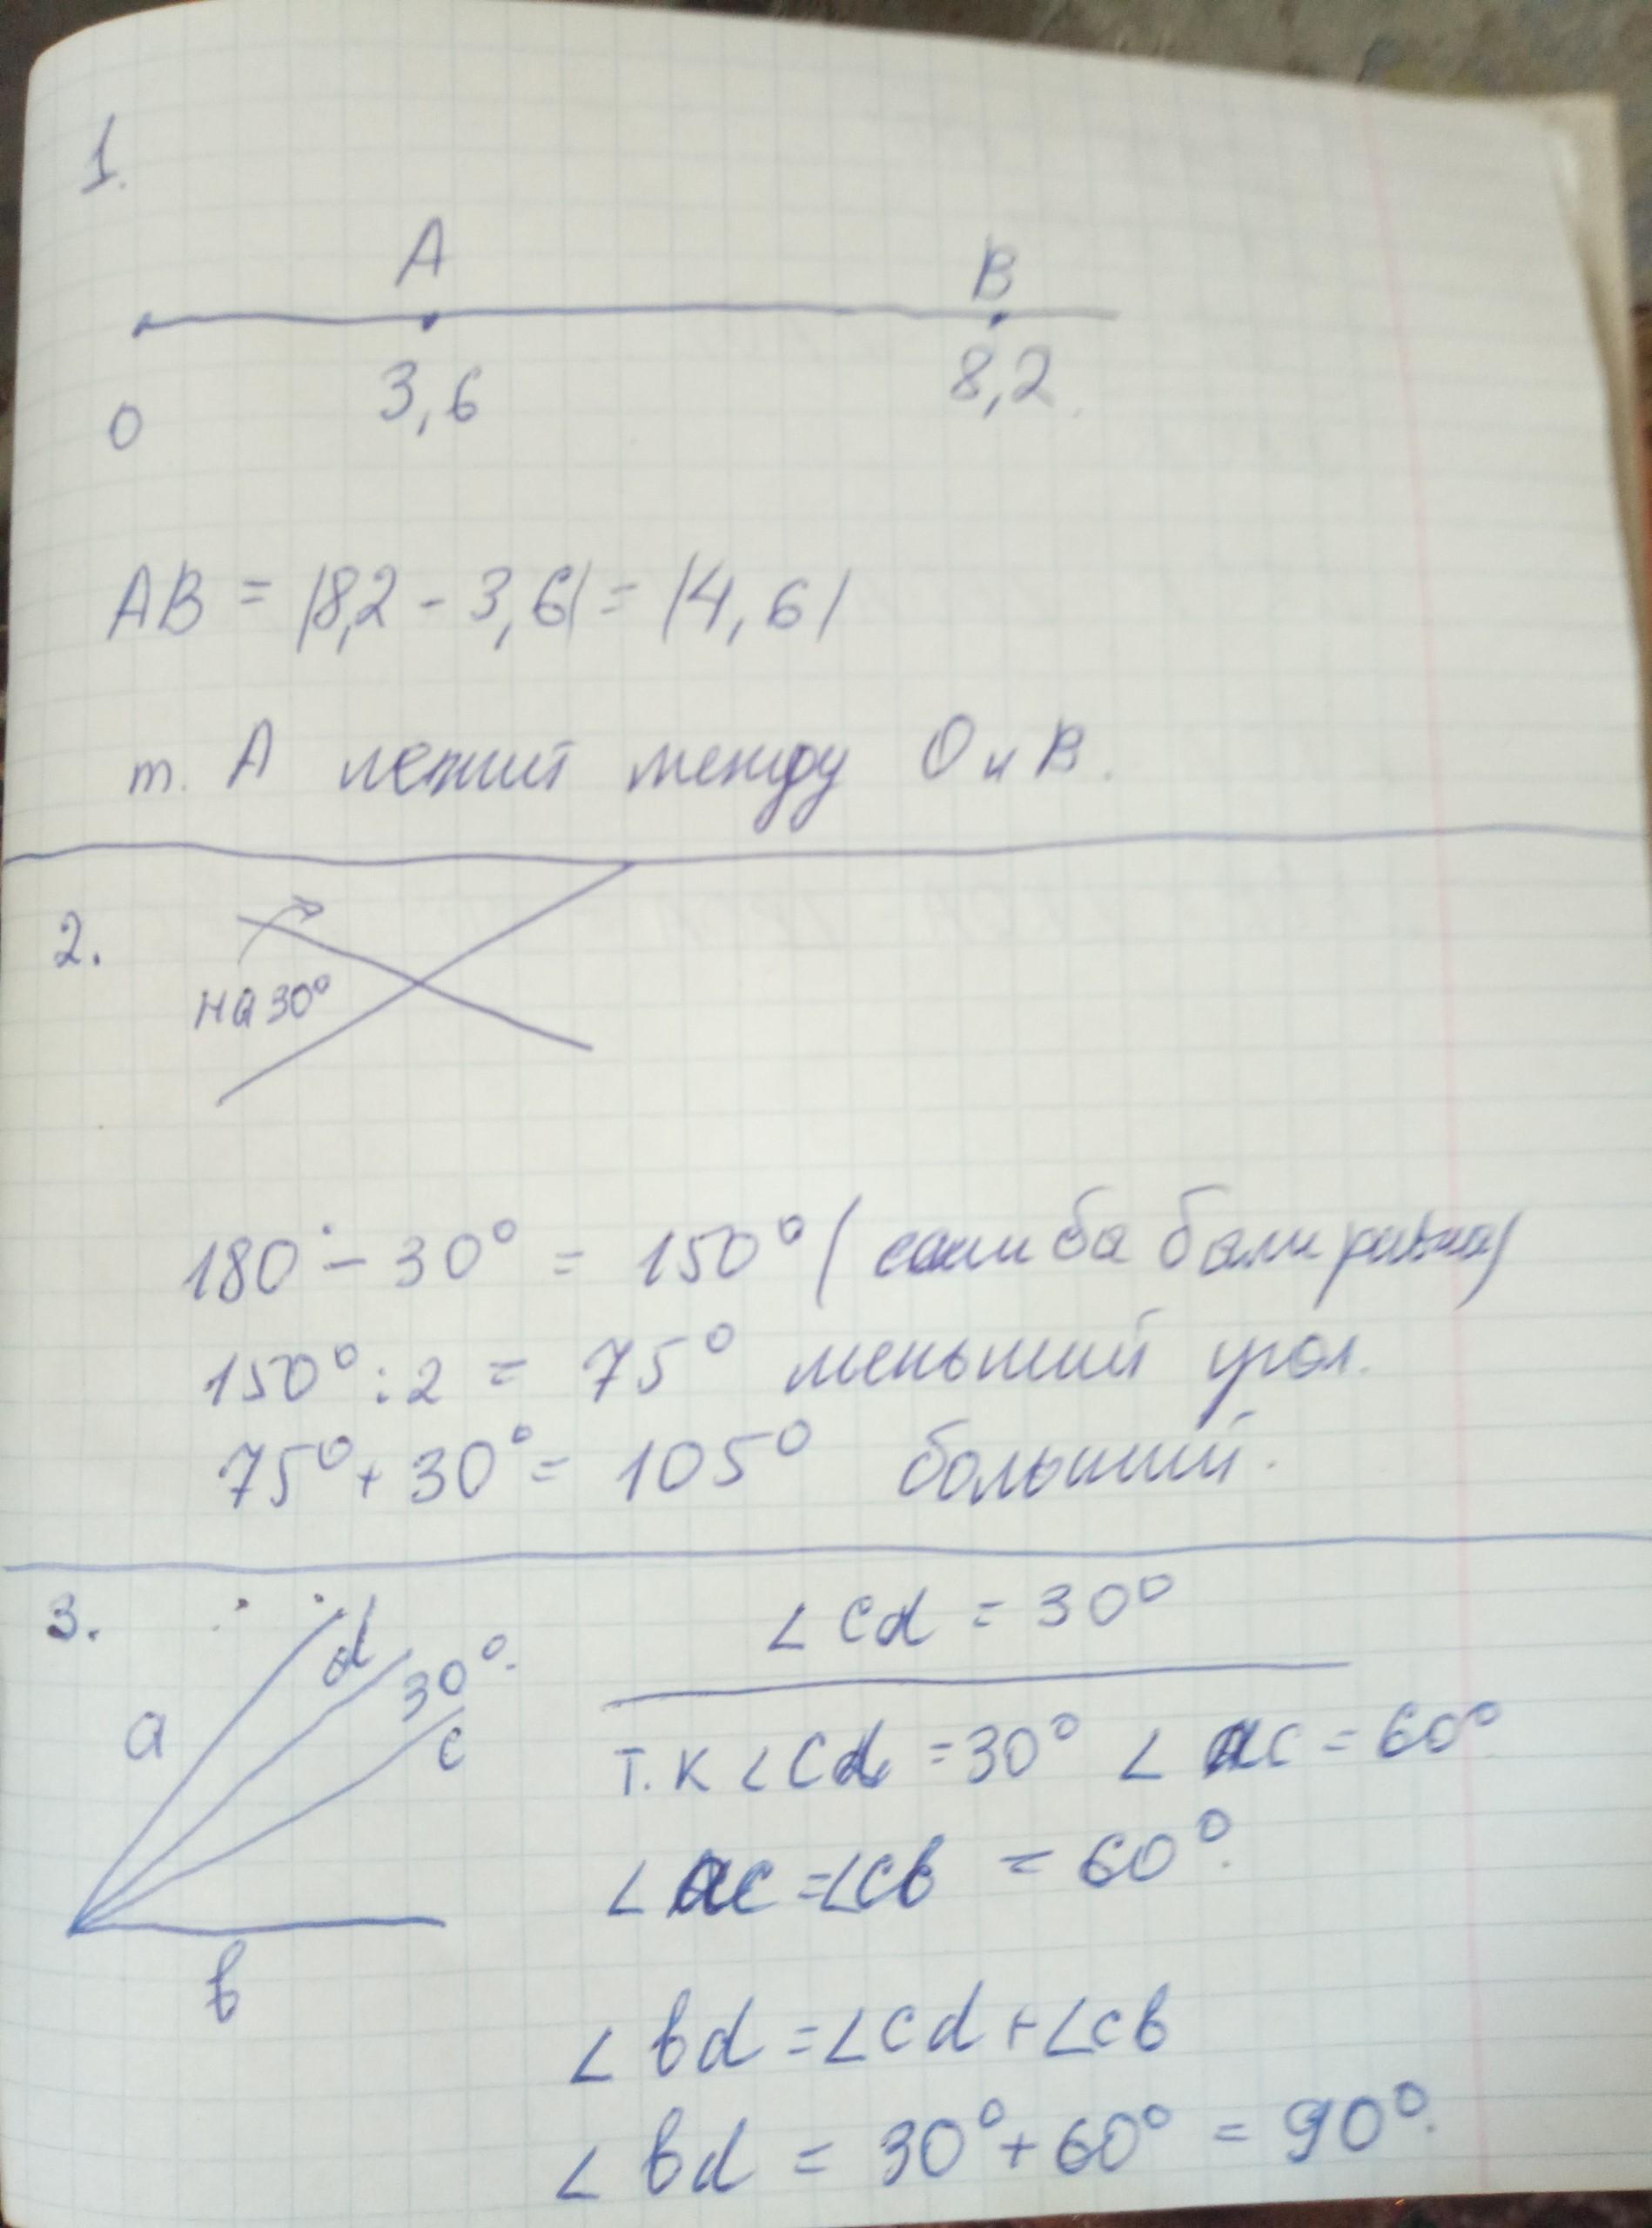 1.
A B
0 3,6 8,2
AB = |8,2 - 3,6| = |4,6|
т. А лежит между О и В.
2.
на 30°
180° - 30° = 150° (если бы были равны)
150° : 2 = 75° меньший угол.
75° + 30° = 105° больший.
3.
a d 30° c
b
∠cd = 30°
т.к ∠cd = 30° ∠ac = 60°
∠ac = ∠cb = 60°.
∠bd = ∠cd + ∠cb
∠bd = 30° + 60° = 90°.